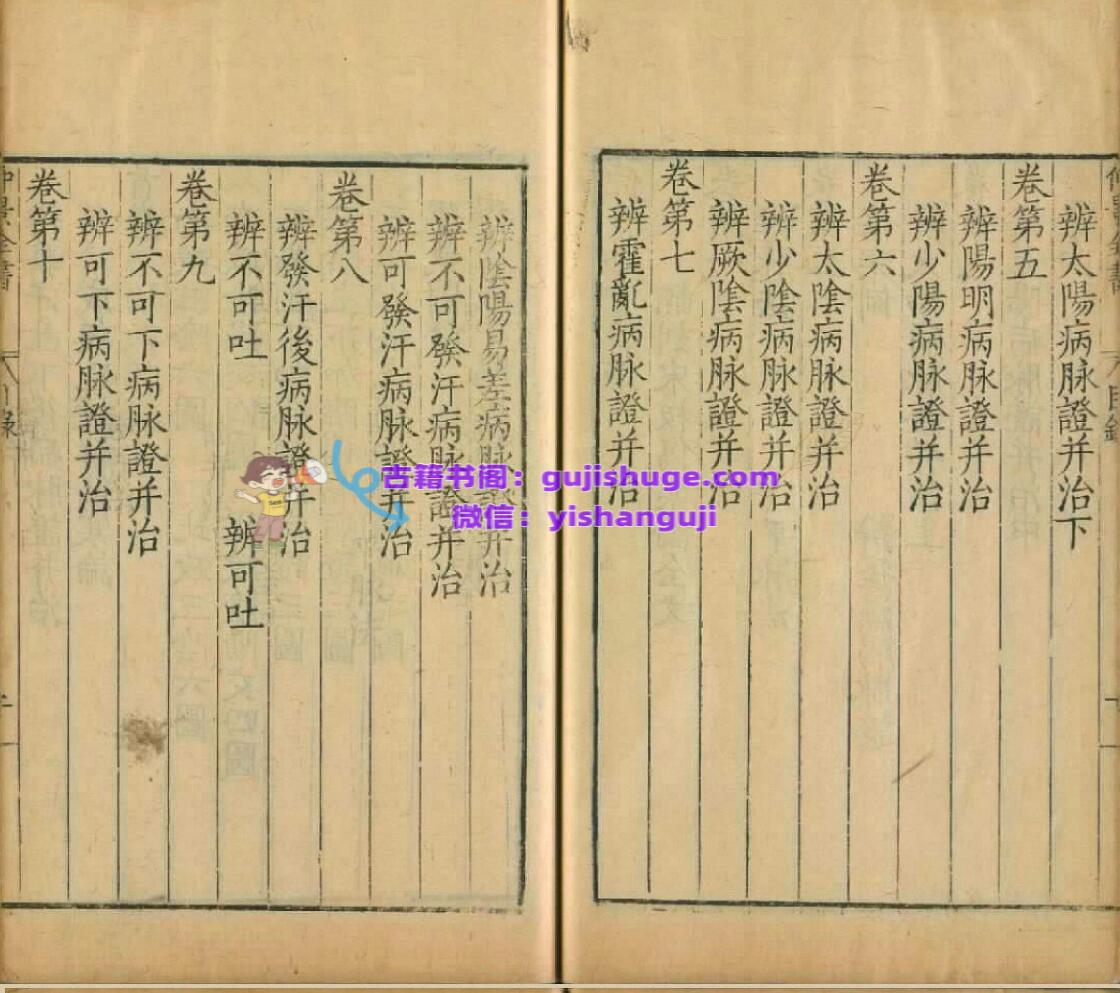 辨太陽病脉證并治下
卷第五
辨陽明病脉證并治
辨少陽病脉證并治
卷第六
辨太陰病脉證并治
辨少陰病脉證并治
辨厥陰病脉證并治
卷第七
辨霍亂病脉證并治
辨陰陽易差病脉證并治
辨不可發汗病脉證并治
辨可發汗病脉證并治
卷第八
辨發汗後病脉證并治
辨不可吐 辨可吐
卷第九
辨不可下病脉證并治
辨可下病脉證并治
卷第十
古籍书阁：gujishuge.com
微信：yishanguji